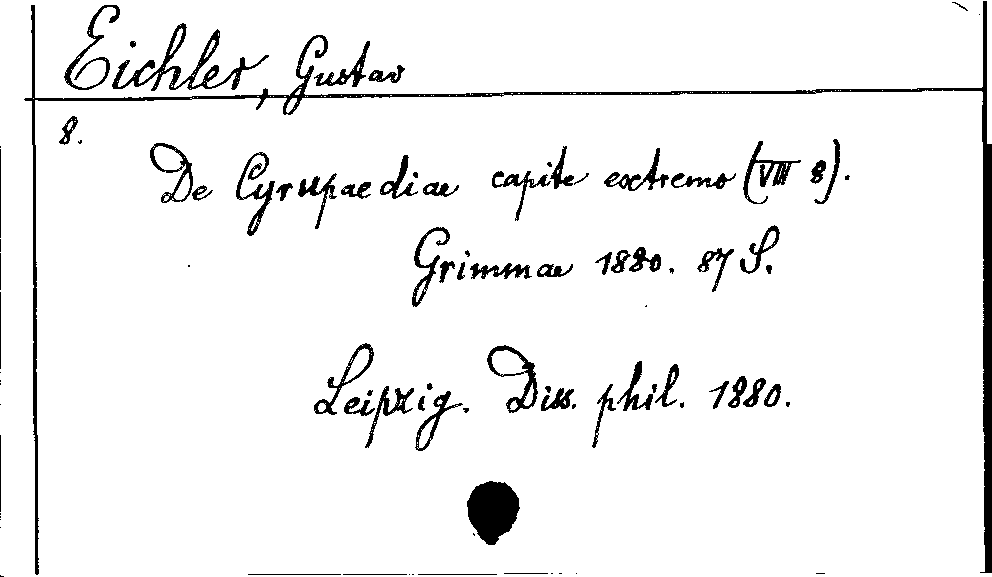 Eichler, Gustav
8.
De Cyrupaediae capite extremo (VIII 8).
Grimmae 1880. 87 S.
Leipzig. Diss. phil. 1880.